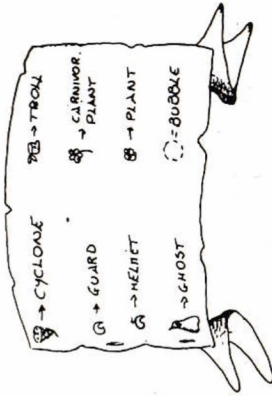 → CYCLONE
→ GUARD
→ HELMET
→ GHOST
→ TROLL
→ CARNIVOR.
PLANT
→ PLANT
= BUBBLE